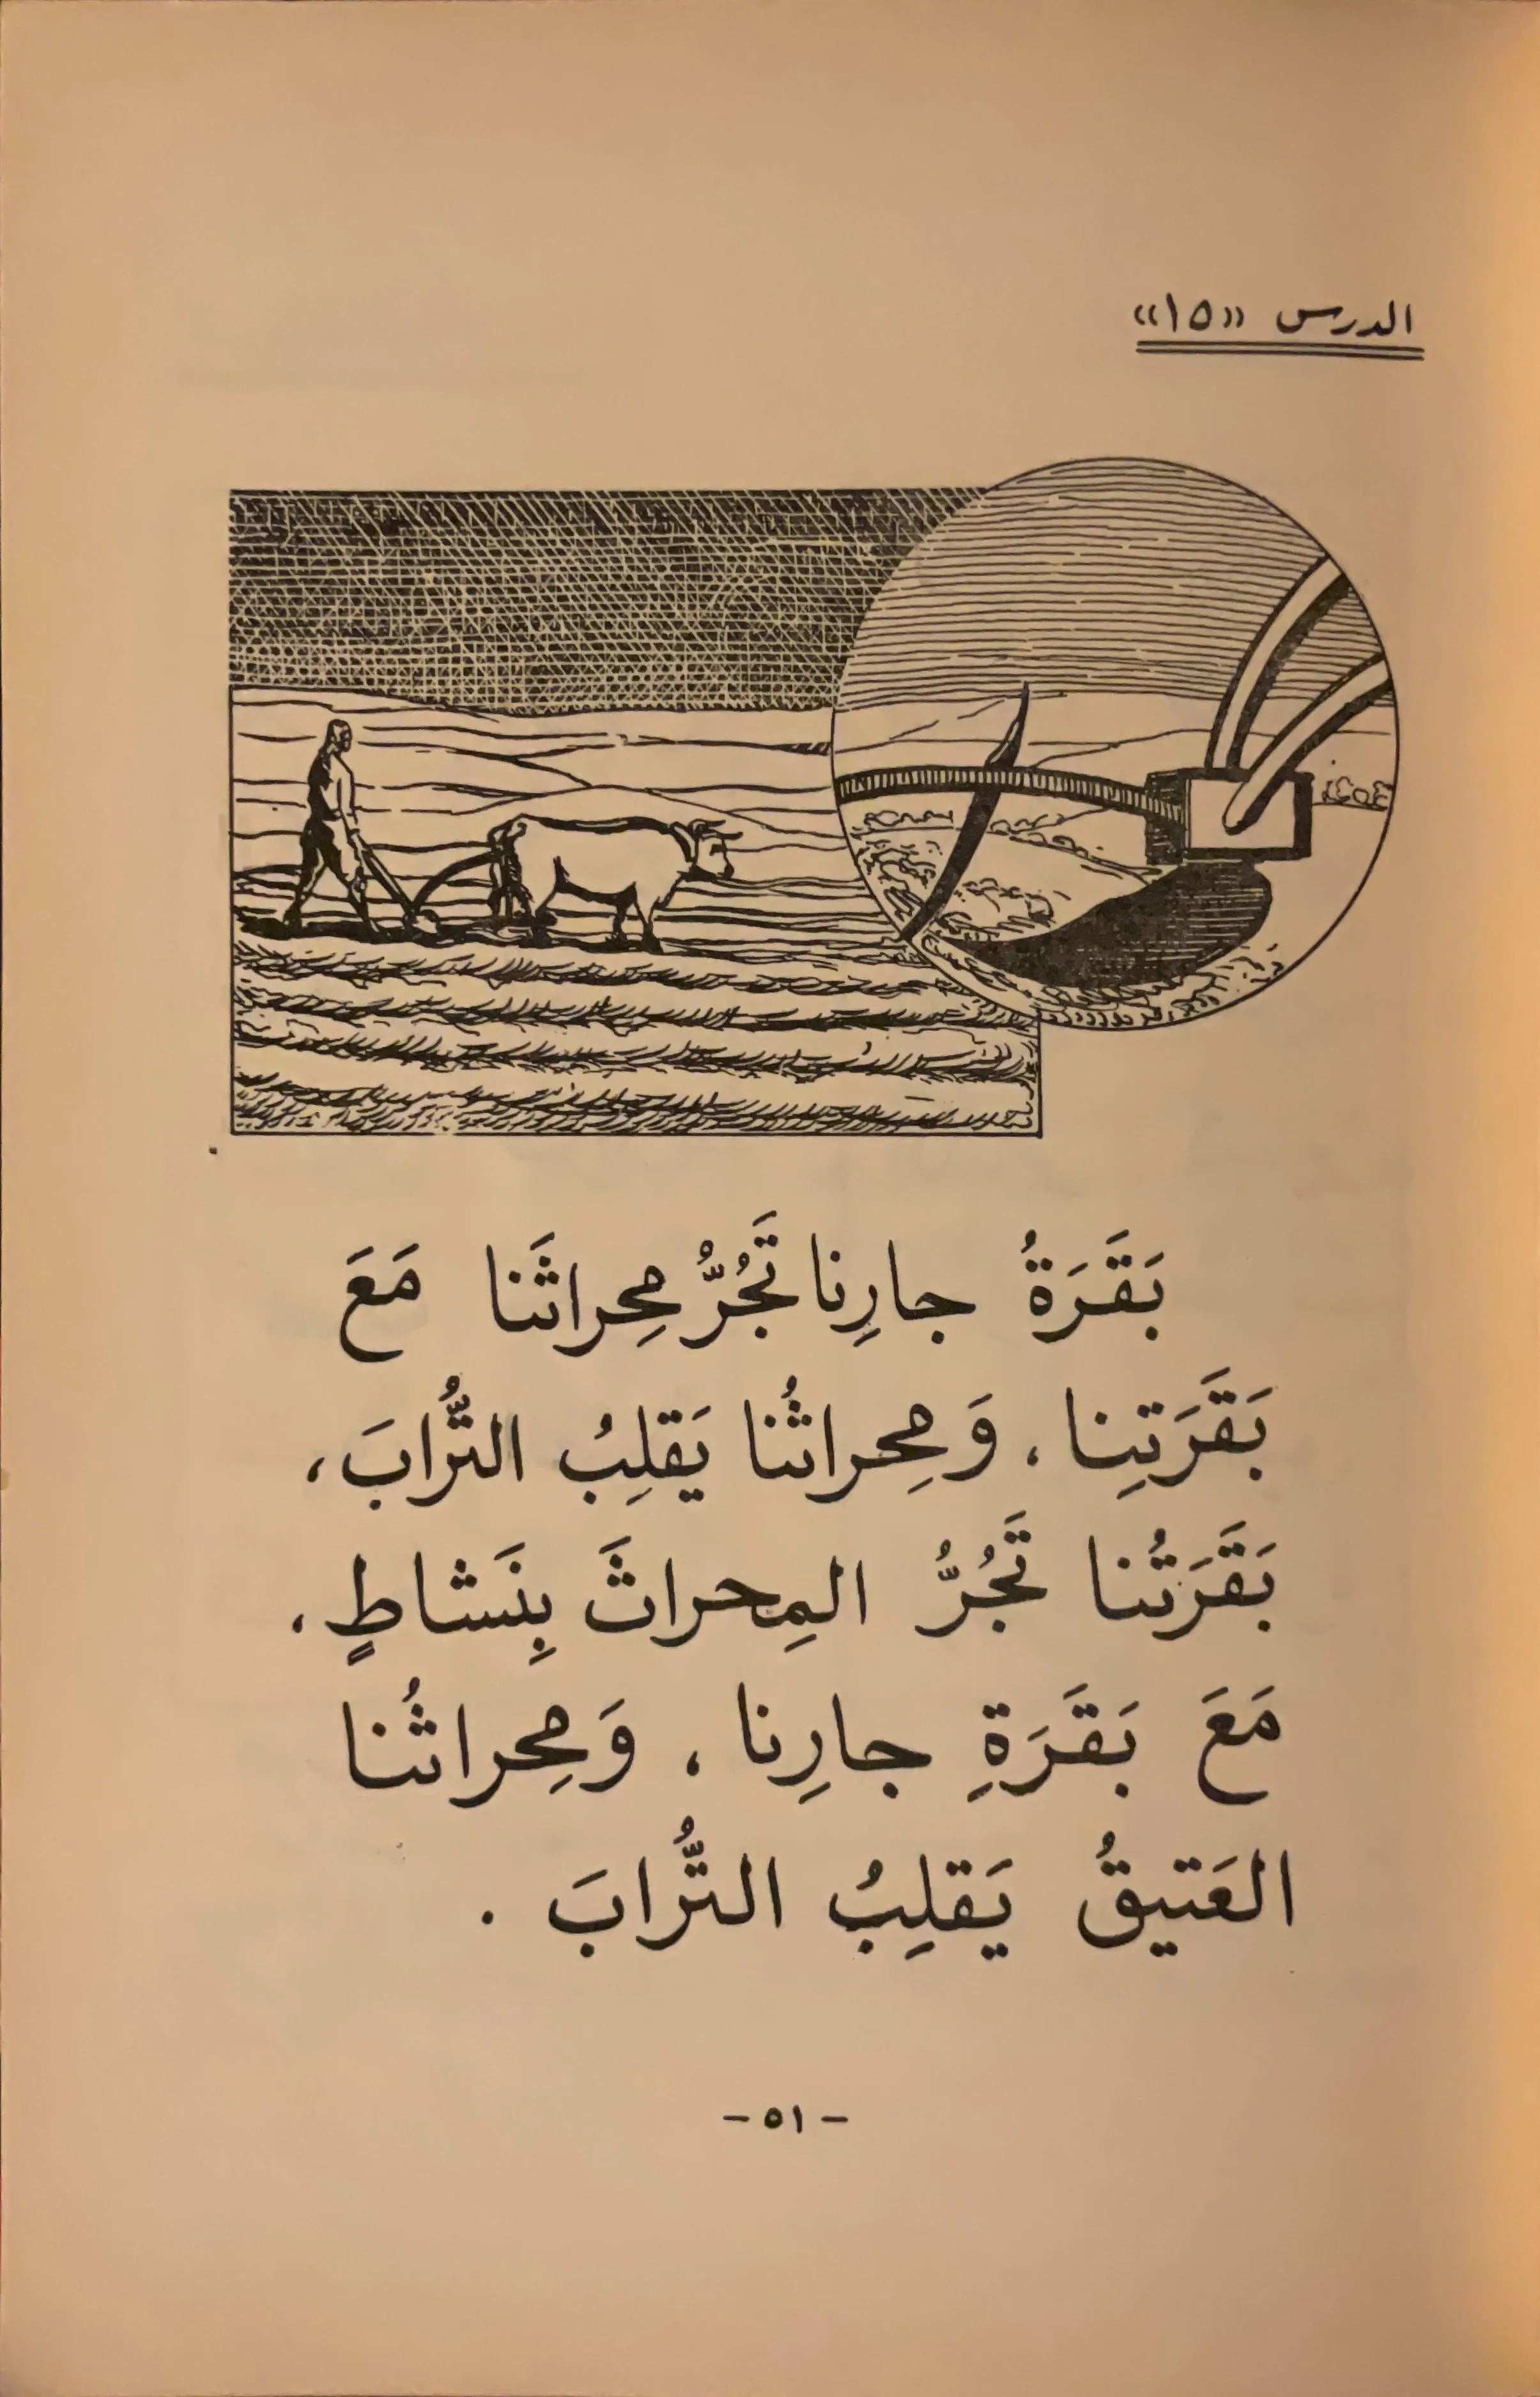 الدرس «١٥»
بَقَرَةُ جارِنا تَجُرُّ مِحراثَنا مَعَ
بَقَرَتِنا ، وَمِحراثُنا يَقلِبُ التُّرابَ ،
بَقَرَتُنا تَجُرُّ المِحراثَ بِنَشاطٍ ،
مَعَ بَقَرَةِ جارِنا ، وَمِحراثُنا
العَتيقُ يَقلِبُ التُّرابَ .
- ٥١ -